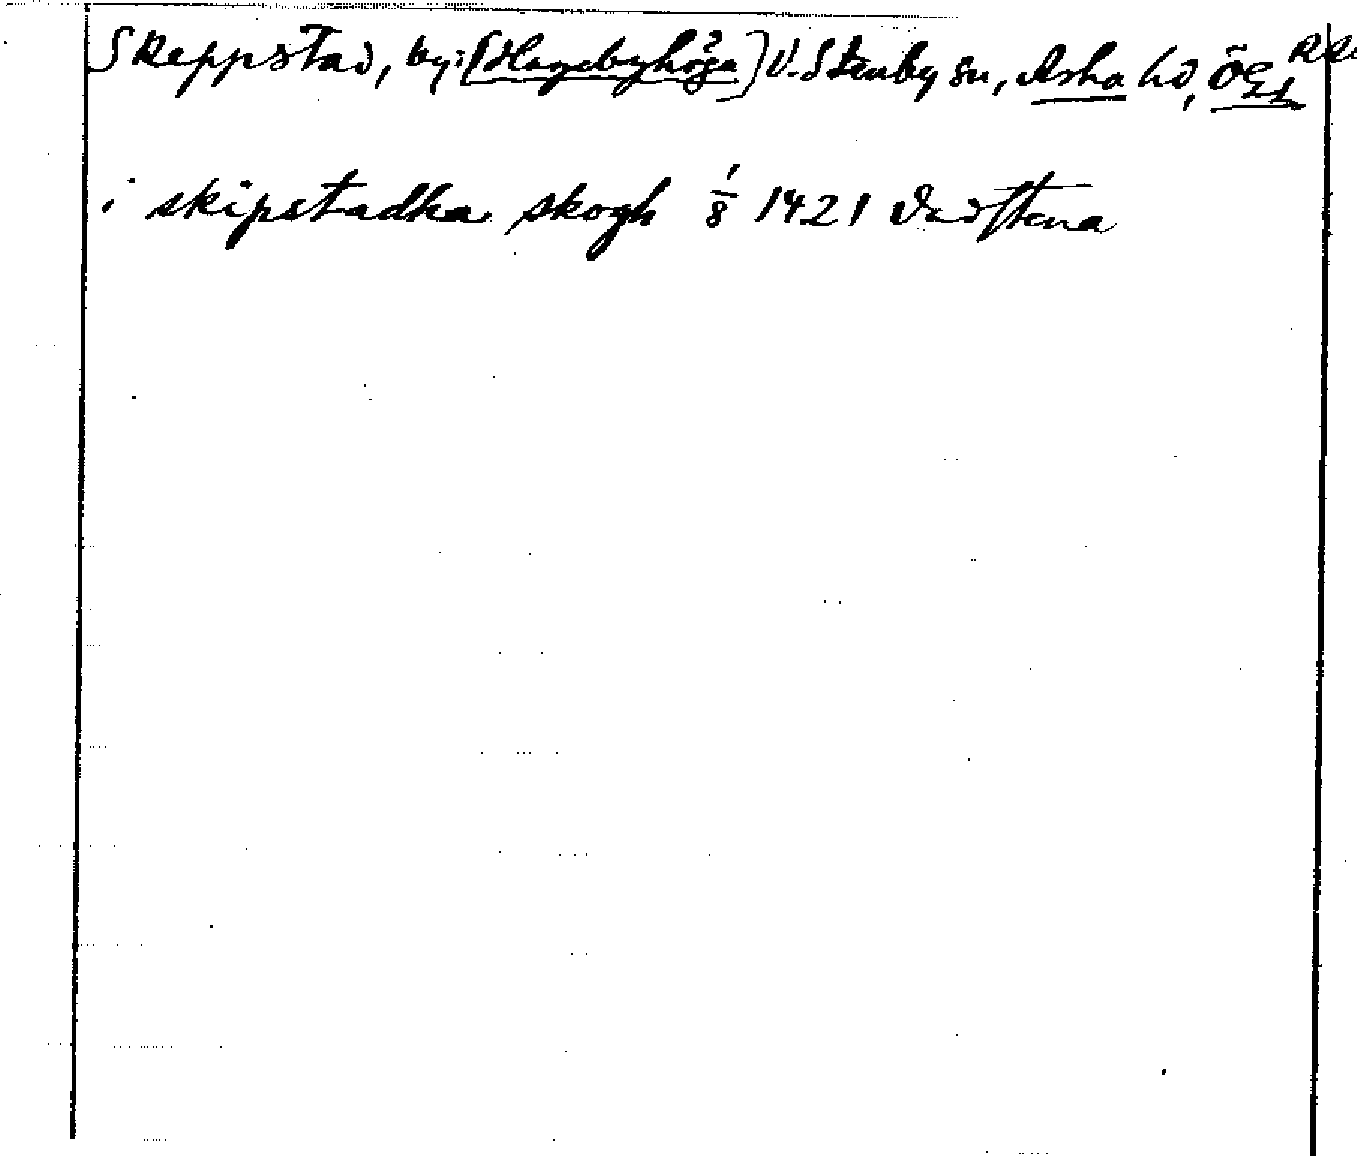 Skeppstad, by: [Hagebyhöga] V. Stenby sn, Aska hd, Ögl
i skipstadha skogh 1/8 1421 Vadstena